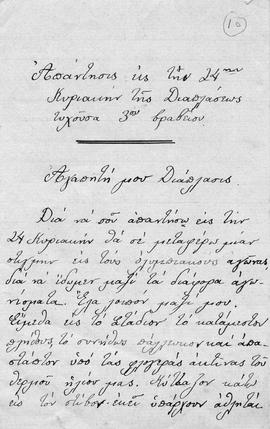 10
Ἀπάντησις εἰς τὴν 24ην
Κυριακὴν τῆς Διαπλάσεως
τυχοῦσα 3ου βραβείου
Ἀγαπητή μου Διάπλασις
Διὰ νὰ σοῦ ἀπαντήσω εἰς τὴν
24 Κυριακὴν θὰ σὲ μεταφέρω μίαν
στιγμὴν εἰς τοὺς ὀλυμπιακοὺς ἀγῶνας
διὰ νὰ ἴδωμεν μαζὶ τὰ διάφορα ἀγω-
νίσματα. Ἔλα λοιπὸν μαζί μου.
Εἴμεθα εἰς τὸ Στάδιον τὸ κατάμεστον
πλήθους, τὸ σύνηθες πάλλευκον καὶ ἀπα-
στράπτον ὑπὸ τὰς φλογερὰς ἀκτῖνας τοῦ
θερμοῦ ἡλίου μας. Κύτταξον κάτω
εἰς τὸν στίβον ἐκεῖ ὑπάρχουν ἀθληταὶ